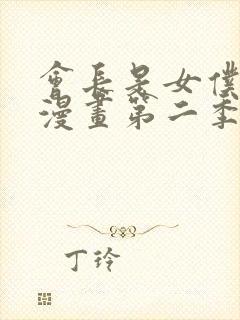 會長是女僕
漫畫第二季
丁玲